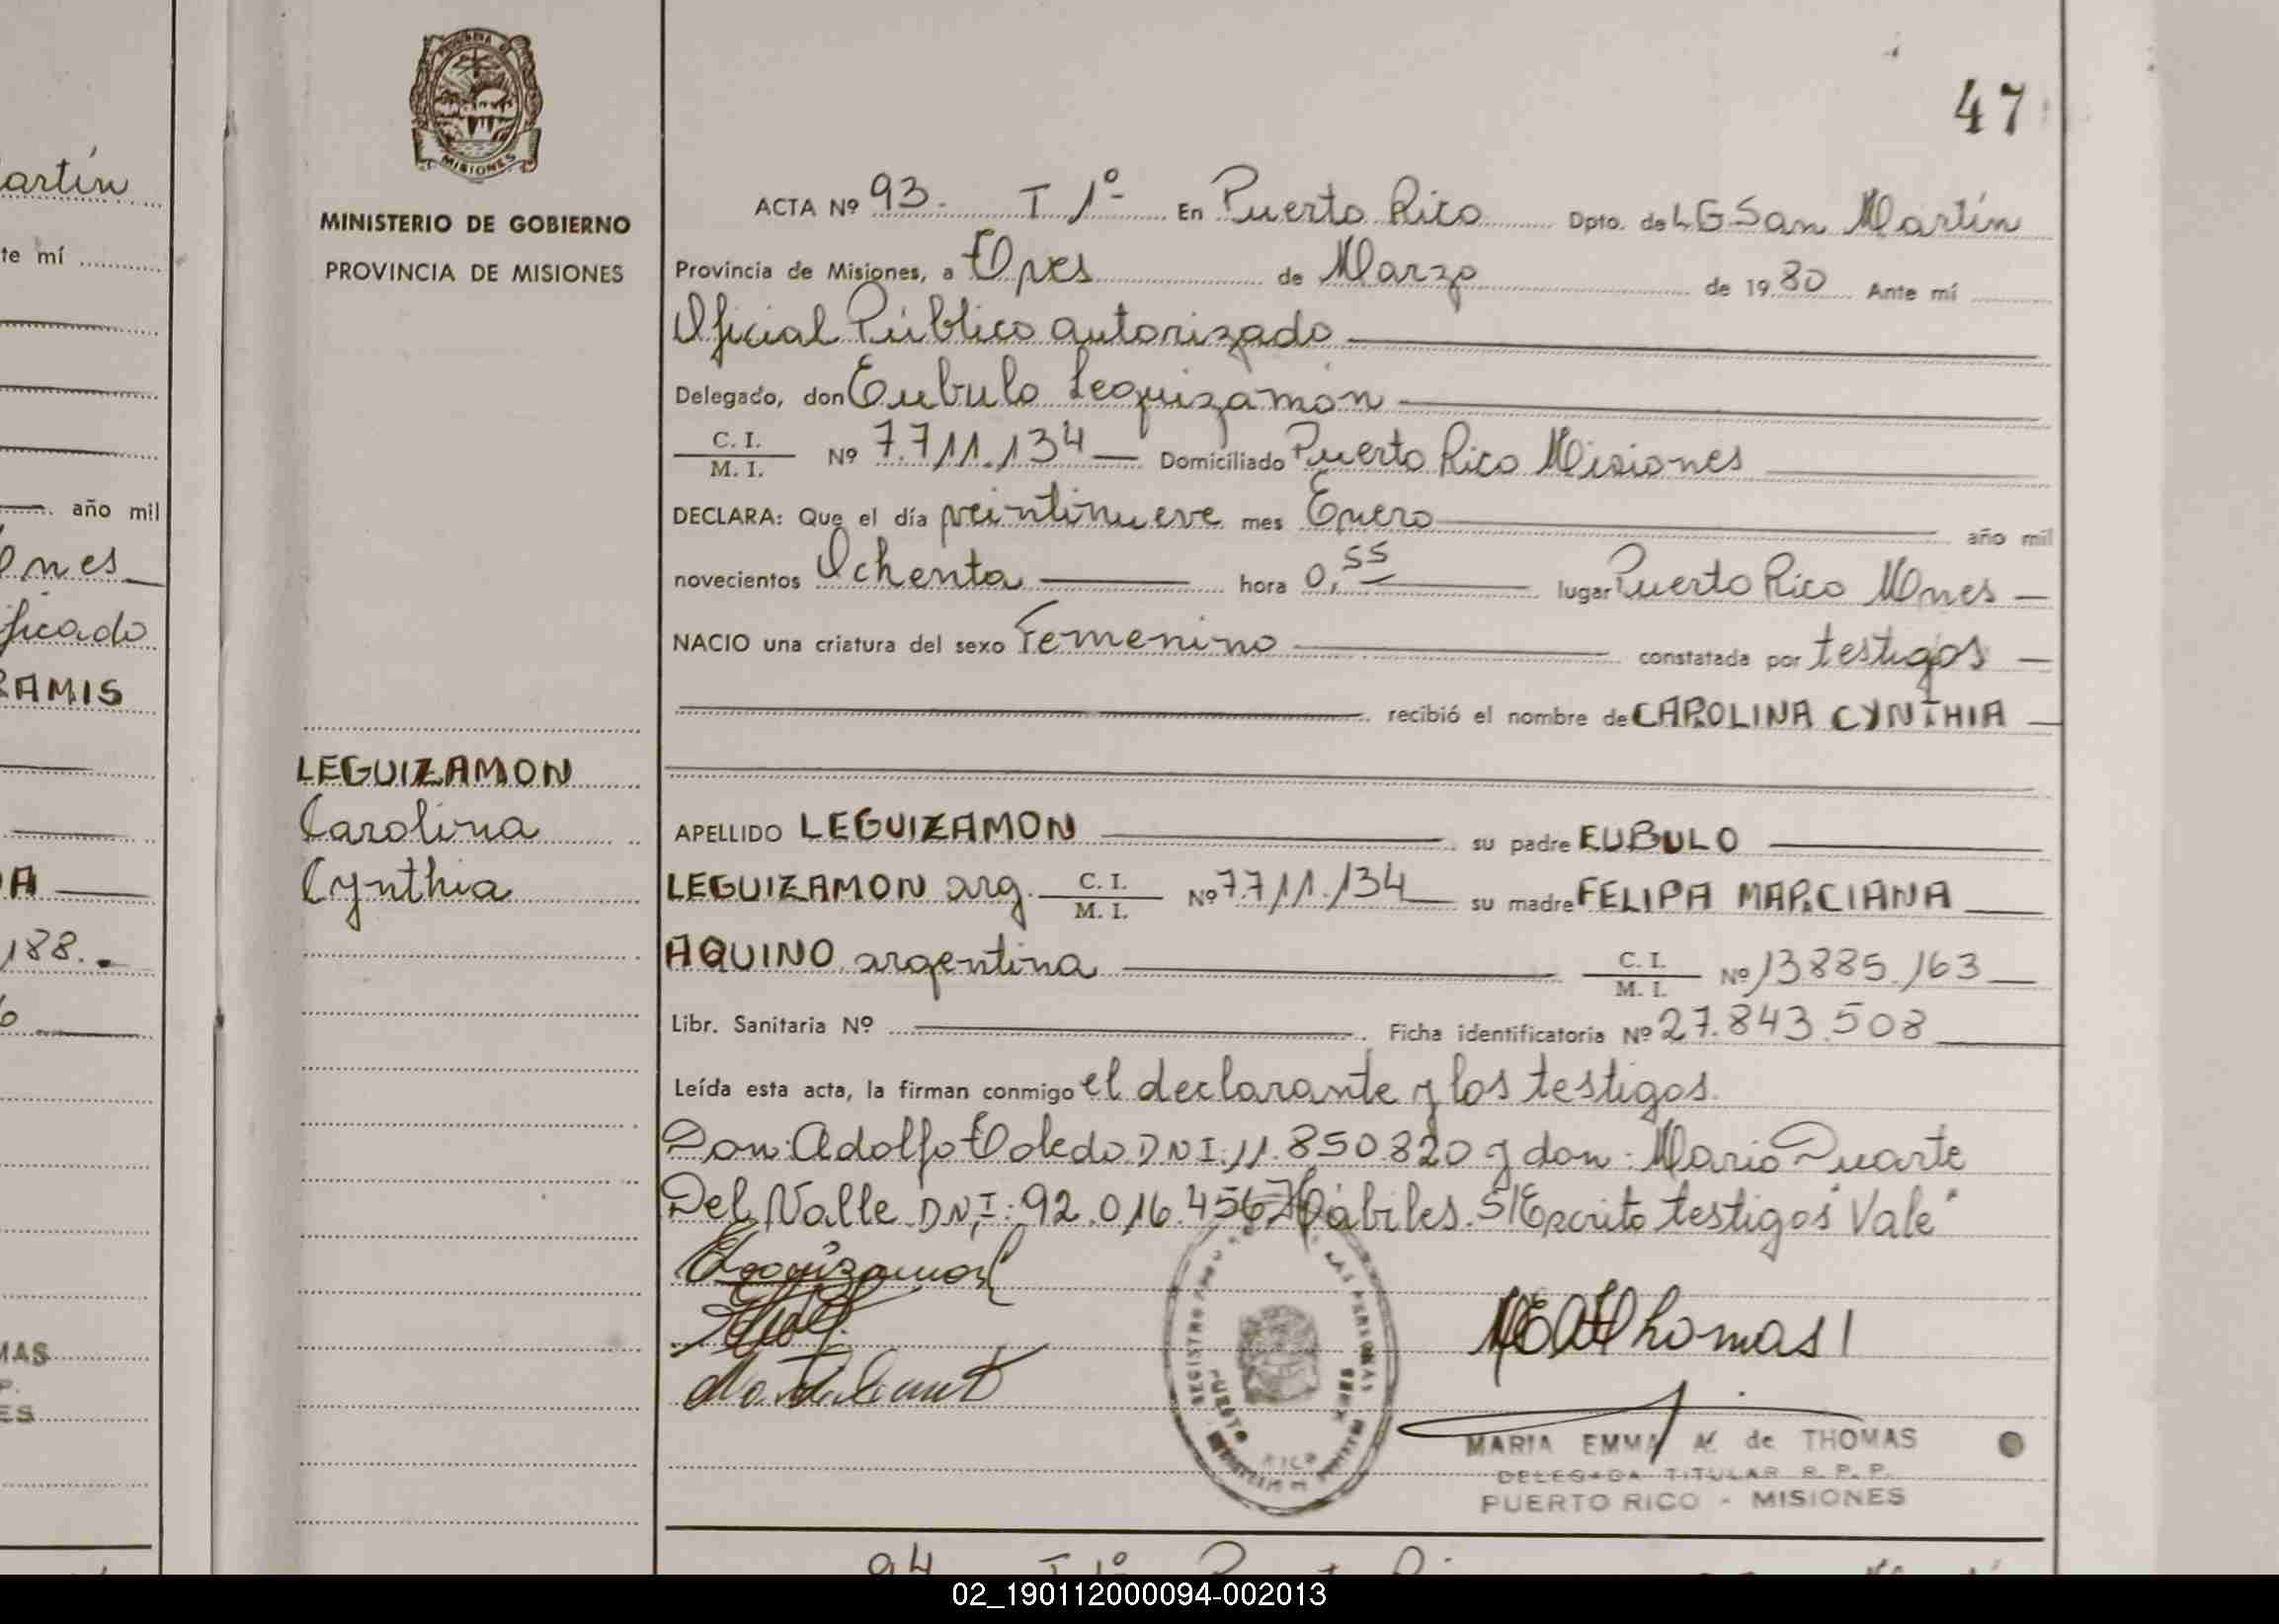 artín
te mí
año mil
ones
ficado
RAMIS
A
188.
6
MAS
P.
ES
MISIONES
MINISTERIO DE GOBIERNO
PROVINCIA DE MISIONES
LEGUIZAMON
Carolina
Cynthia
47
ACTA Nº 93. T 1º- En Puerto Rico Dpto. de L G San Martín
Provincia de Misiones, a Tres de Marzo de 1980 Ante mí
Oficial Público autorizado
Delegado, don Eubulo Leguizamón
C. I.
M. I. Nº 7.711.134 Domiciliado Puerto Rico Misiones
DECLARA: Que el día veintinueve mes Enero año mil
novecientos Ochenta hora 0,55 lugar Puerto Rico Mnes
NACIO una criatura del sexo Femenino constatada por testigos
recibió el nombre de CAROLINA CYNTHIA
APELLIDO LEGUIZAMON su padre EUBULO
LEGUIZAMON arg. C. I. M. I. Nº 7.711.134 su madre FELIPA MARCIANA
AQUINO argentina C. I. M. I. Nº 13885.163
Libr. Sanitaria Nº Ficha identificatoria Nº 27.843.508
Leída esta acta, la firman conmigo el declarante y los testigos.
Don: Adolfo Toledo DNI. 11.850.820 y don: Mario Duarte
Del Valle DNI: 92.016.456 Hábiles. S/Escrito testigos "Vale"
Leguizamon
REGISTRO LAS PERSONAS
PUERTO RICO
MEAThomas
MARIA EMMA M. de THOMAS
DELEGADA TITULAR R. P. P.
PUERTO RICO - MISIONES
94 T 1º
02_190112000094-002013